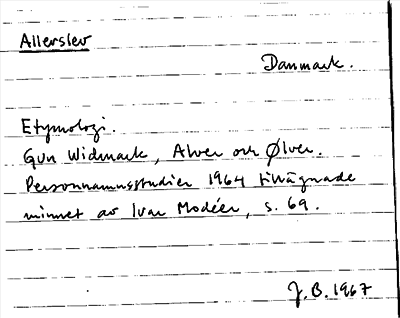 Allerslev
Danmark.
Etymologi.
Gun Widmark, Alver och Ølver.
Personnamnsstudier 1964 tillägnade
minnet av Ivar Modéer, s. 69.
J.B. 1967